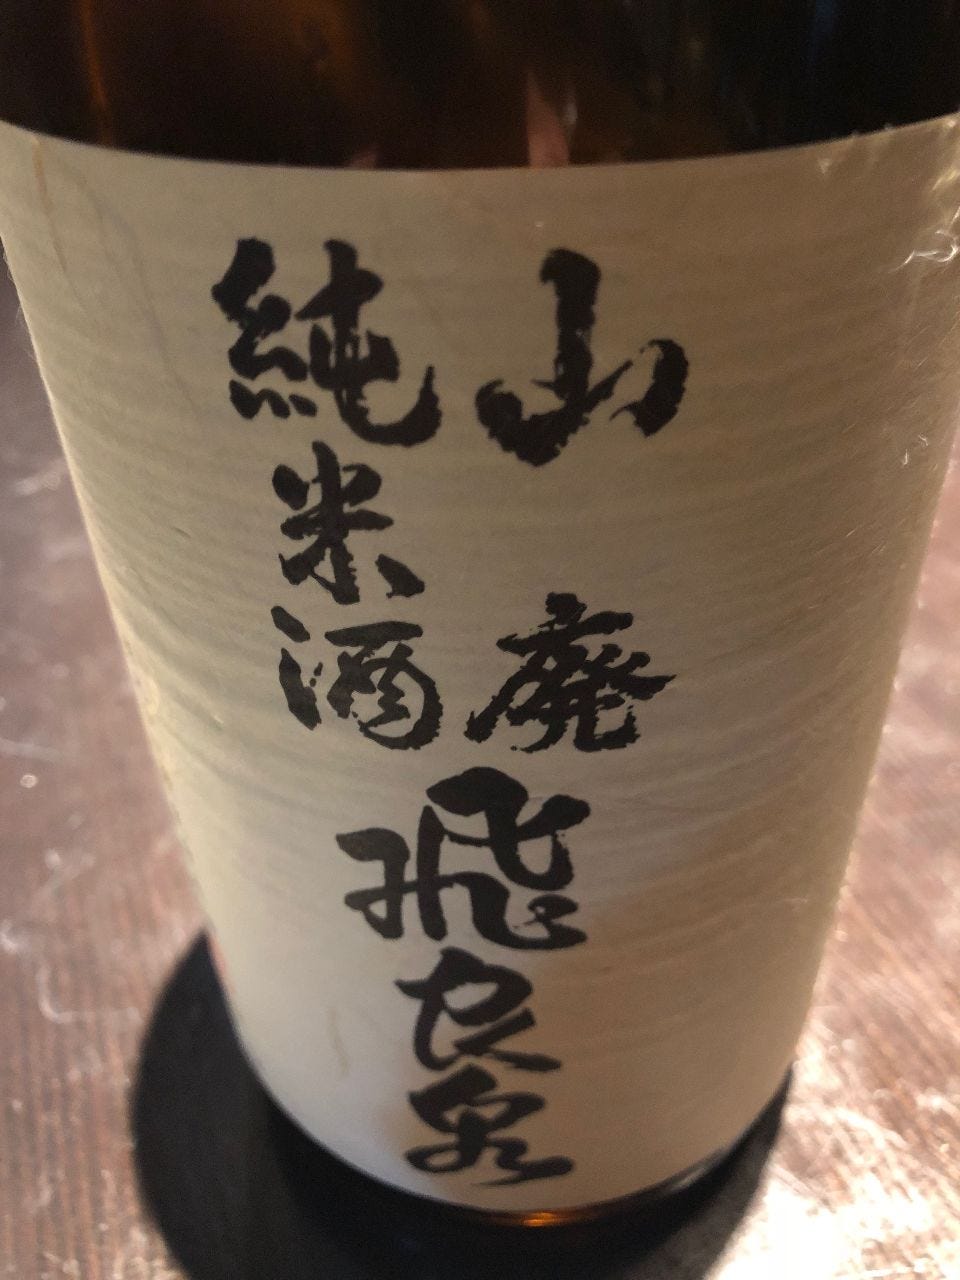 山廃
純米酒
飛良泉